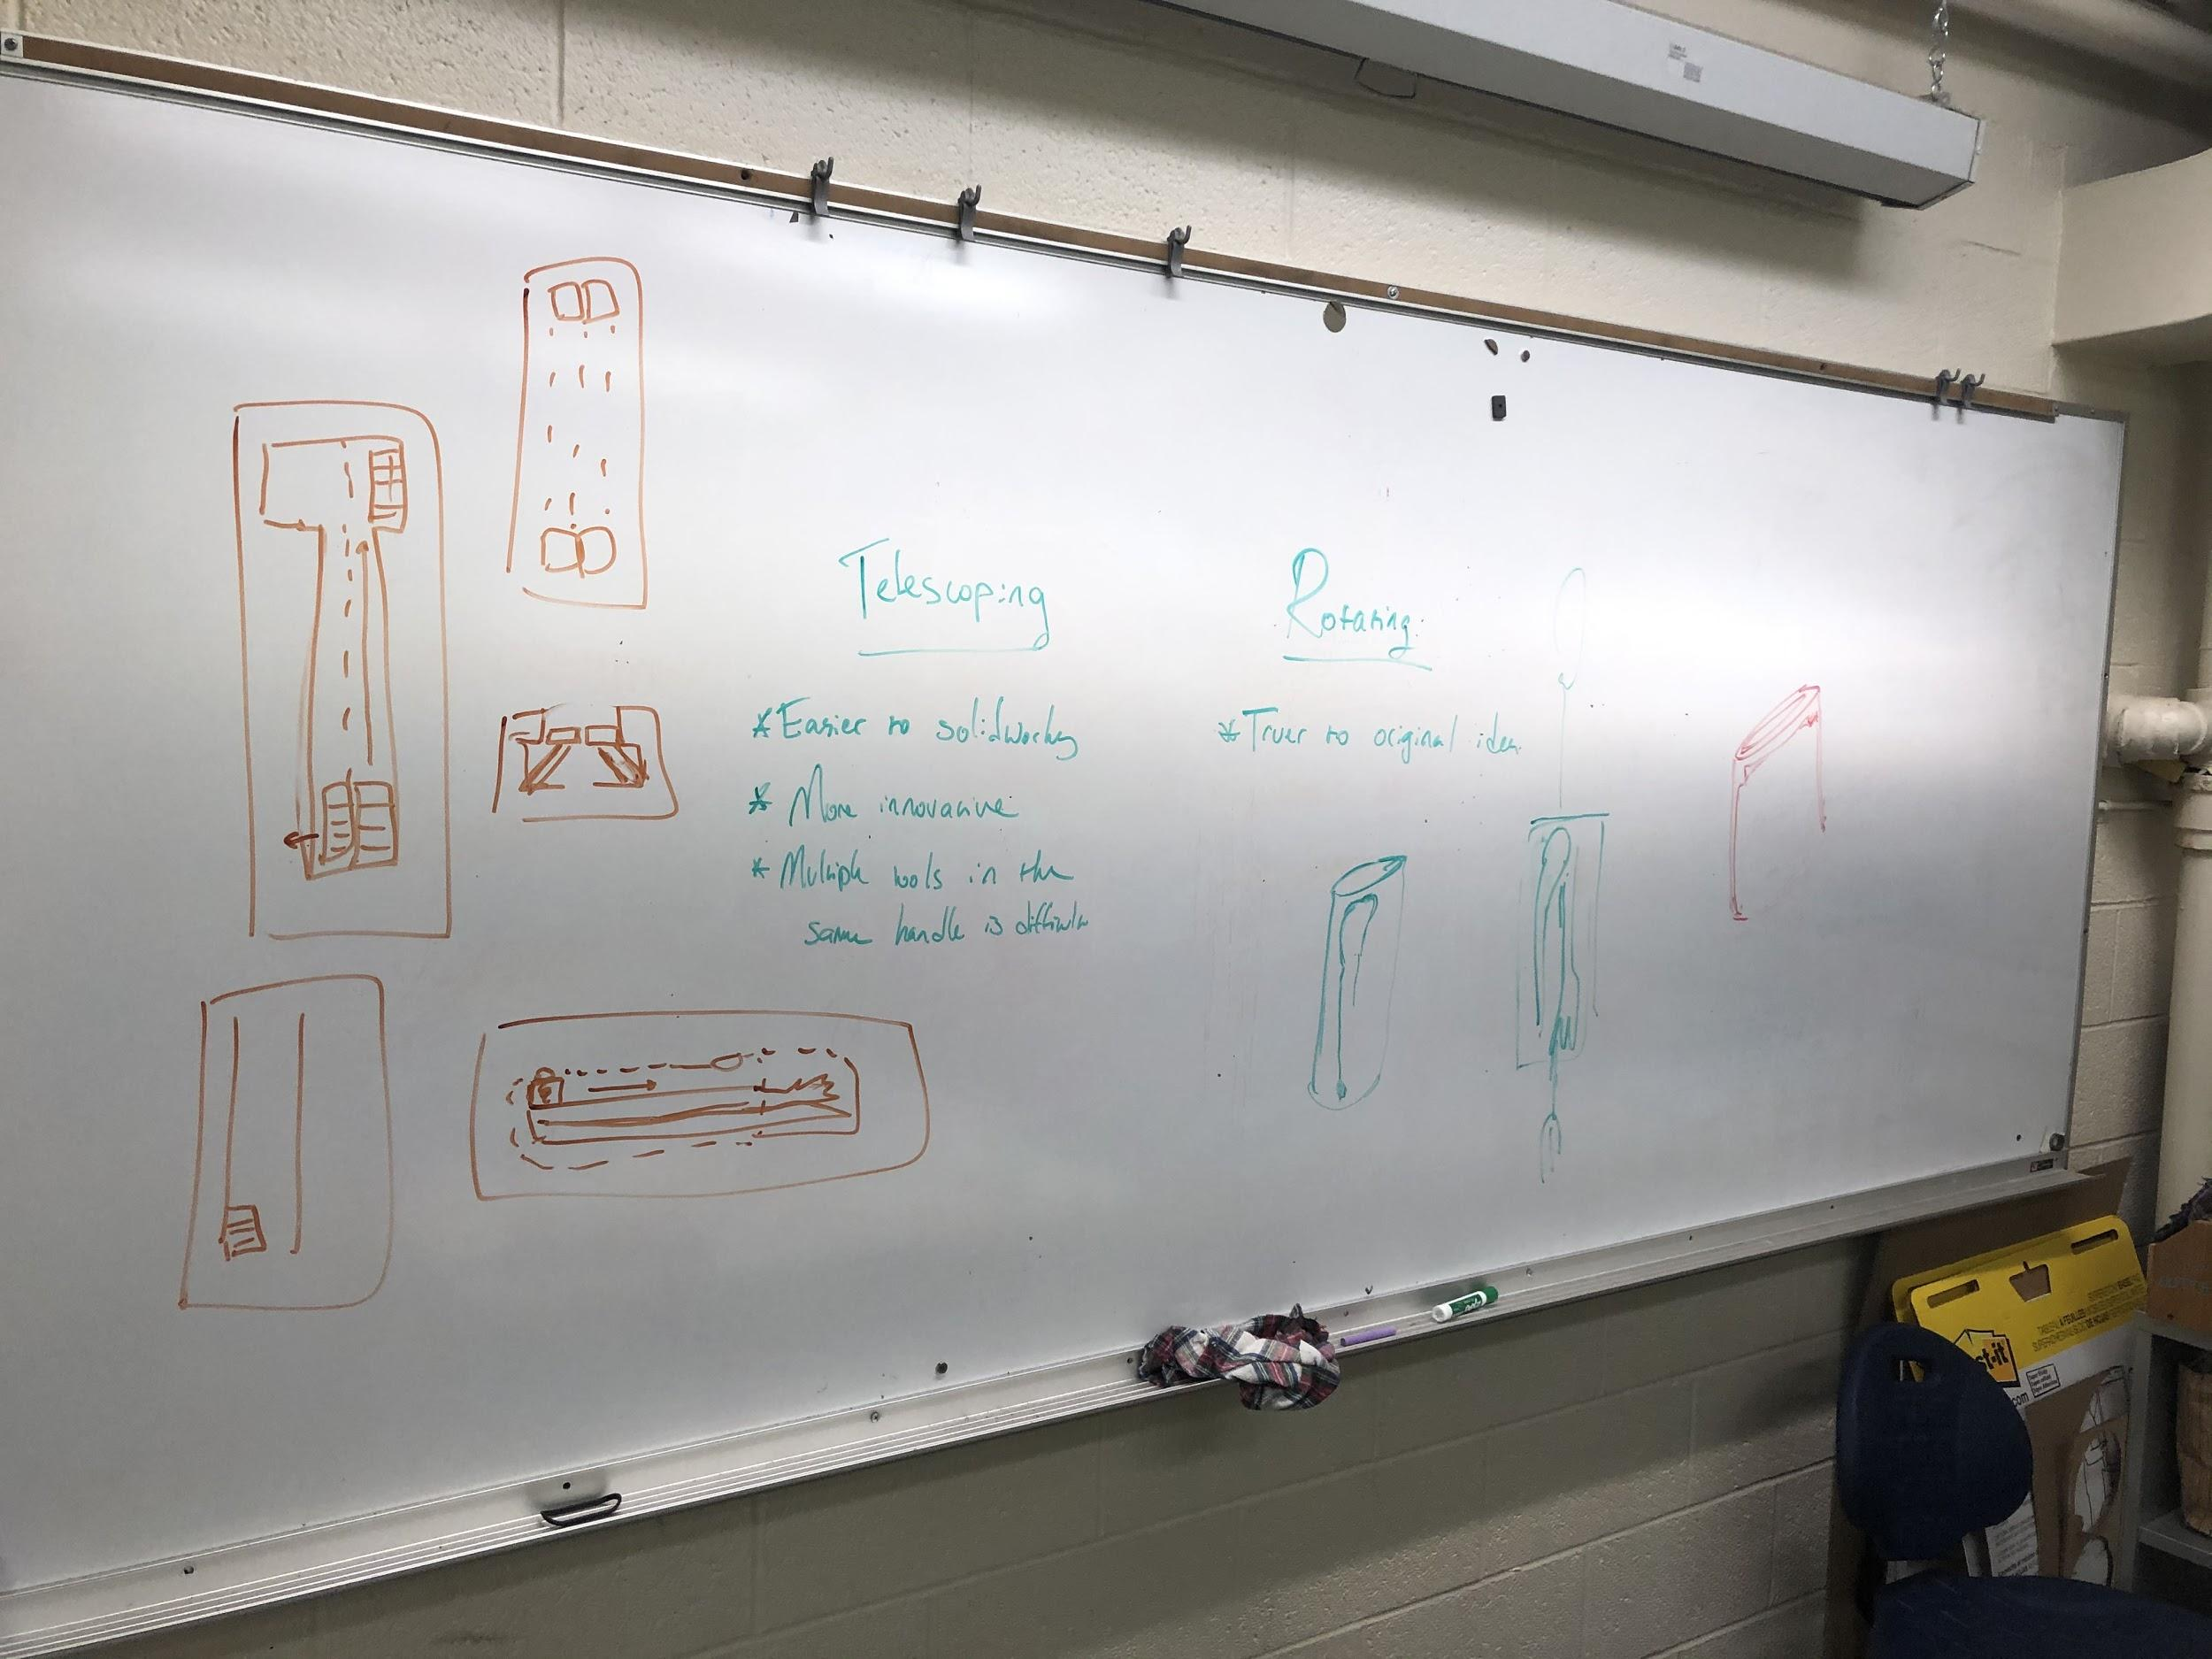 Telescoping
* Easier to solidworks
* More innovative
* Multiple tools in the
same handle is difficult
Rotating:
* Truer to original idea.
st-it
.com